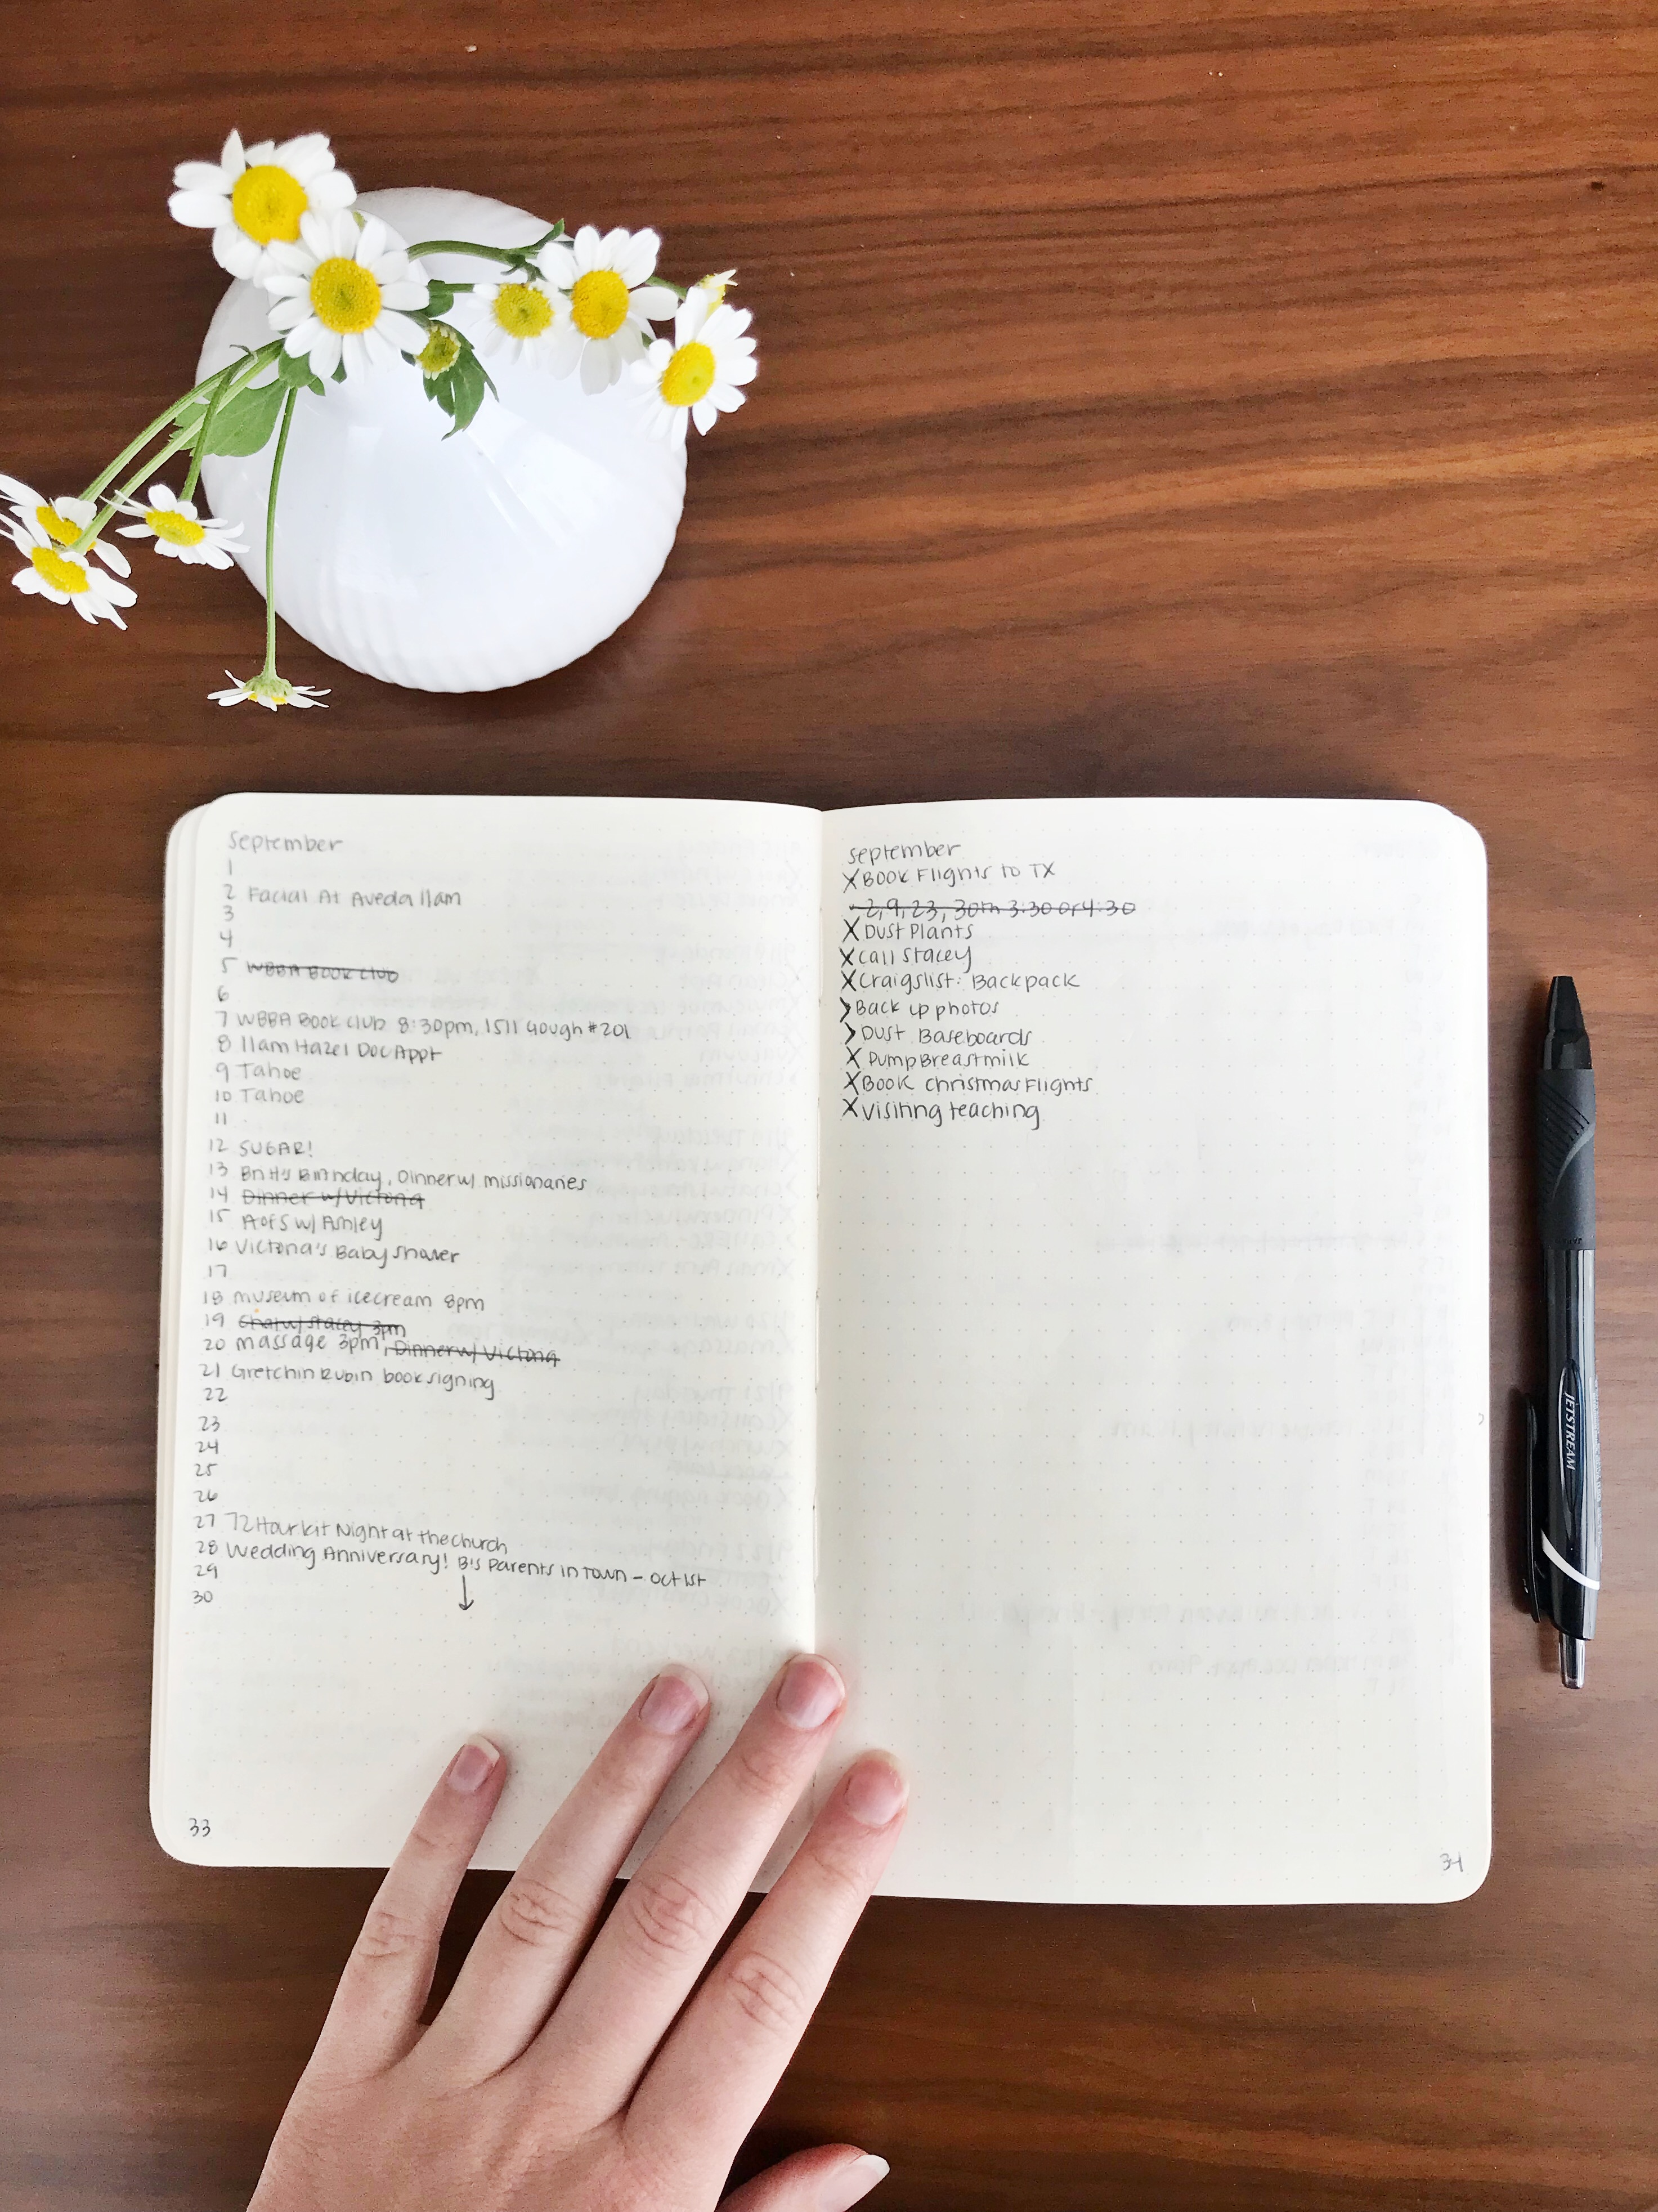 September
1
2 Facial At Aveda 11am
3
4
5 WBBA BOOK CLUB
6
7 WBBA BOOK CLUB 8:30pm, 1511 Gough #201
8 11am Hazel Doc Appt
9 Tahoe
10 Tahoe
11
12 SUGAR!
13 Britt's Birthday, Dinner w/ missionaries
14 Dinner w/ Victoria
15 AofS w/ Ashley
16 Victoria's Baby Shower
17
18 museum of icecream 8pm
19 Chat w/ Stacey 3pm
20 massage 3pm, Dinner w/ Victoria
21 Gretchin Rubin book signing
22
23
24
25
26
27 72 Hour kit Night at the church
28 Wedding Anniversary! B's Parents in Town - Oct 1st
29
30
33
September
X Book Flights to TX
- 2, 9, 23, 30th 3:30 or 4:30
X Dust Plants
X Call Stacey
X Craigslist: Backpack
> Back up photos
> Dust Baseboards
X Pump Breastmilk
X Book Christmas Flights
X Visiting teaching
34
JETSTREAM